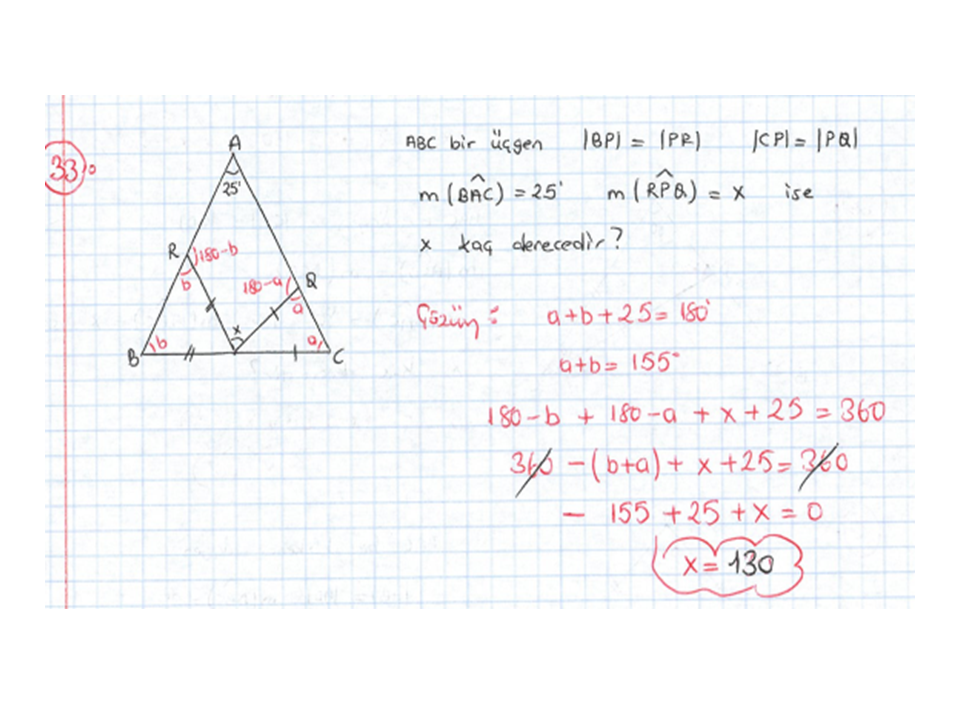 33.
ABC bir üçgen |BP| = |PR| |CP| = |PQ|
m(BÂC) = 25° m(RP̂Q) = x ise
x kaç derecedir?
A
25°
R
180-b
b
180-a
Q
a
x
B
b
a
C
Çözüm: a+b+25=180°
a+b=155°
180-b + 180-a + x + 25 = 360
360 -(b+a)+ x +25=360
- 155 +25 +x = 0
x=130